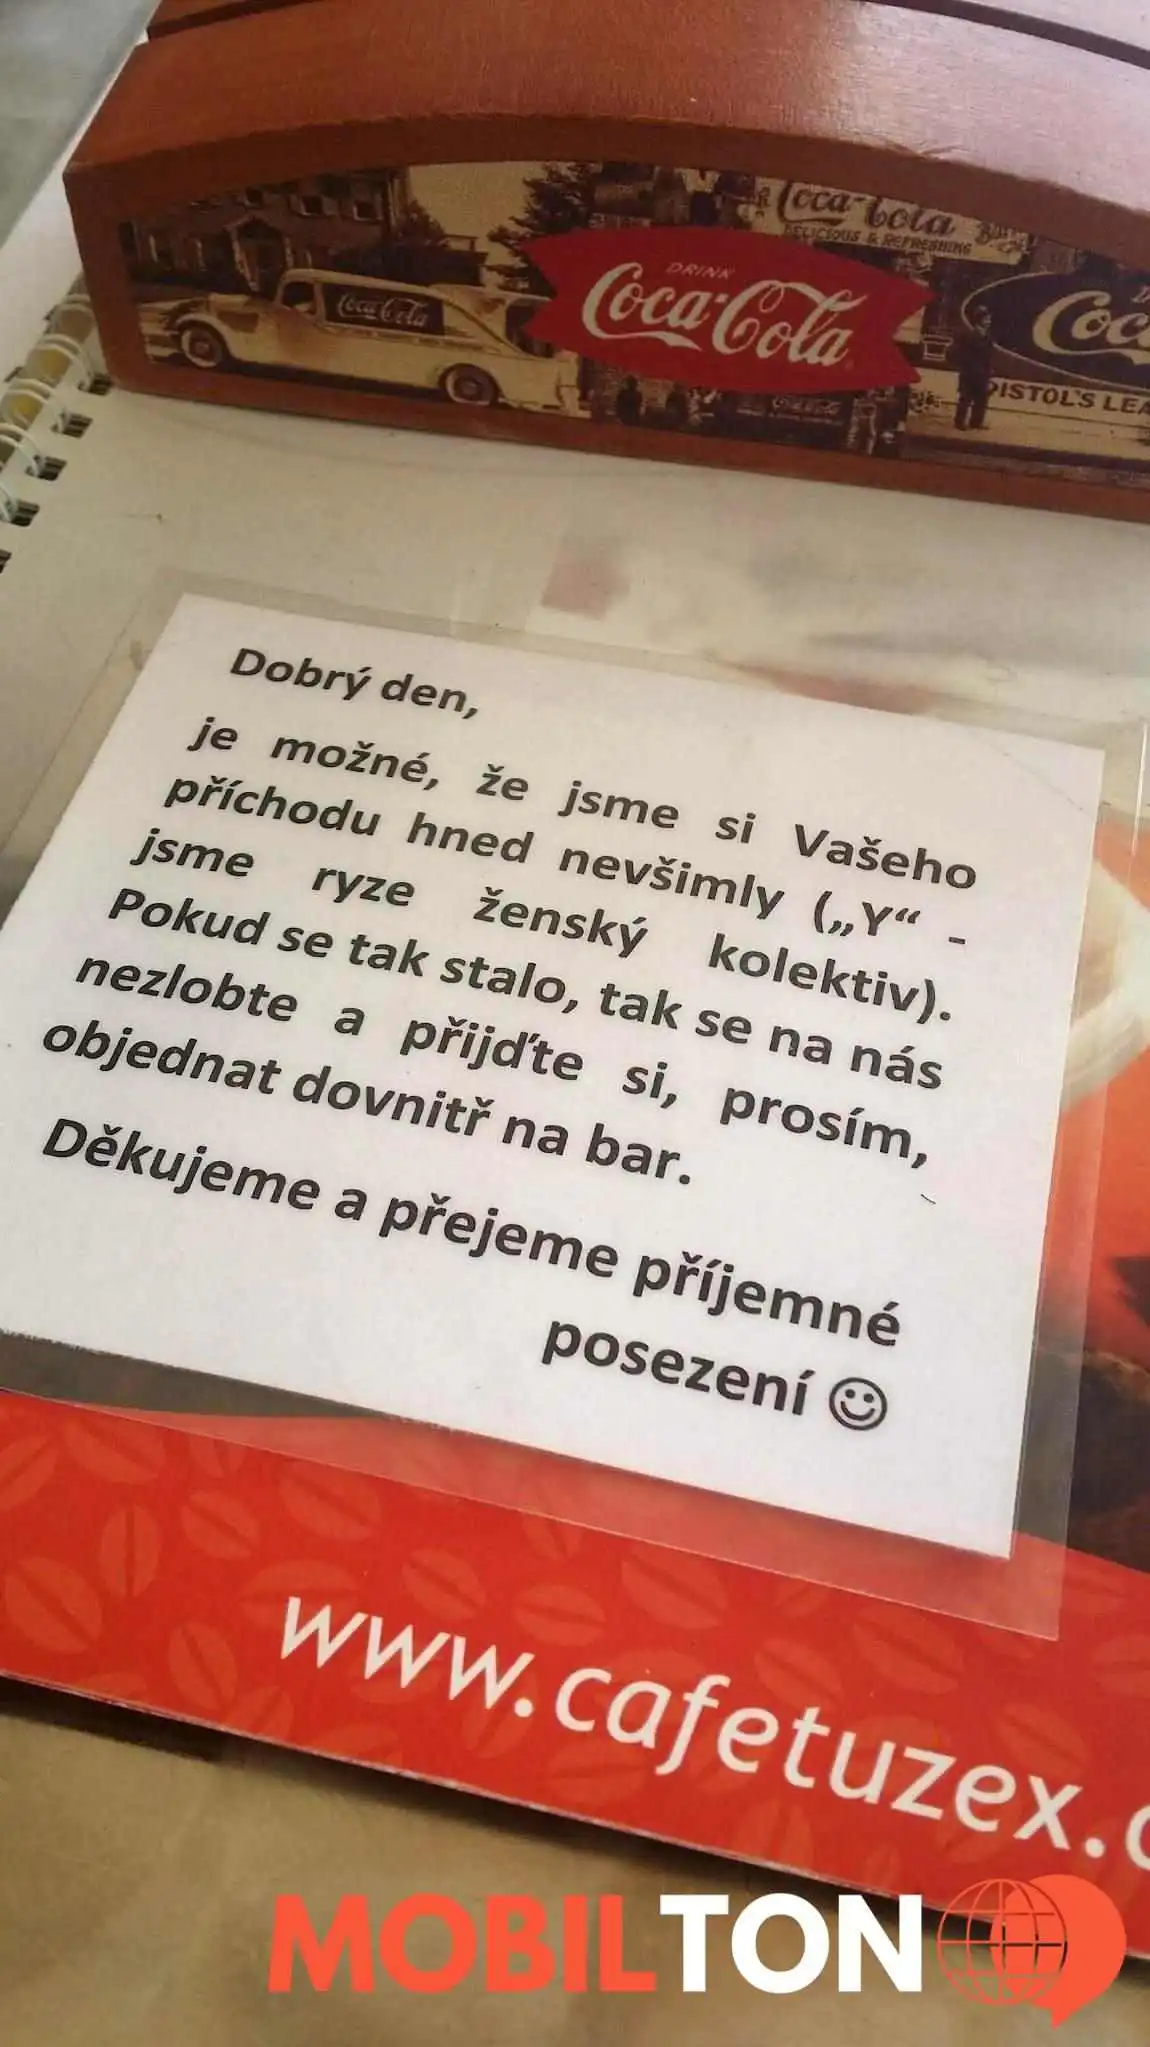 Coca-Cola
DELICIOUS & REFRESHING
DRINK
Coca-Cola
Coca-Cola
Coc
PISTOL'S LEA
Dobrý den,
je možné, že jsme si Vašeho
příchodu hned nevšimly („Y“ -
jsme ryze ženský kolektiv).
Pokud se tak stalo, tak se na nás
nezlobte a přijďte si, prosím,
objednat dovnitř na bar.
Děkujeme a přejeme příjemné
posezení ☺
www.cafetuzex.c
MOBILTON